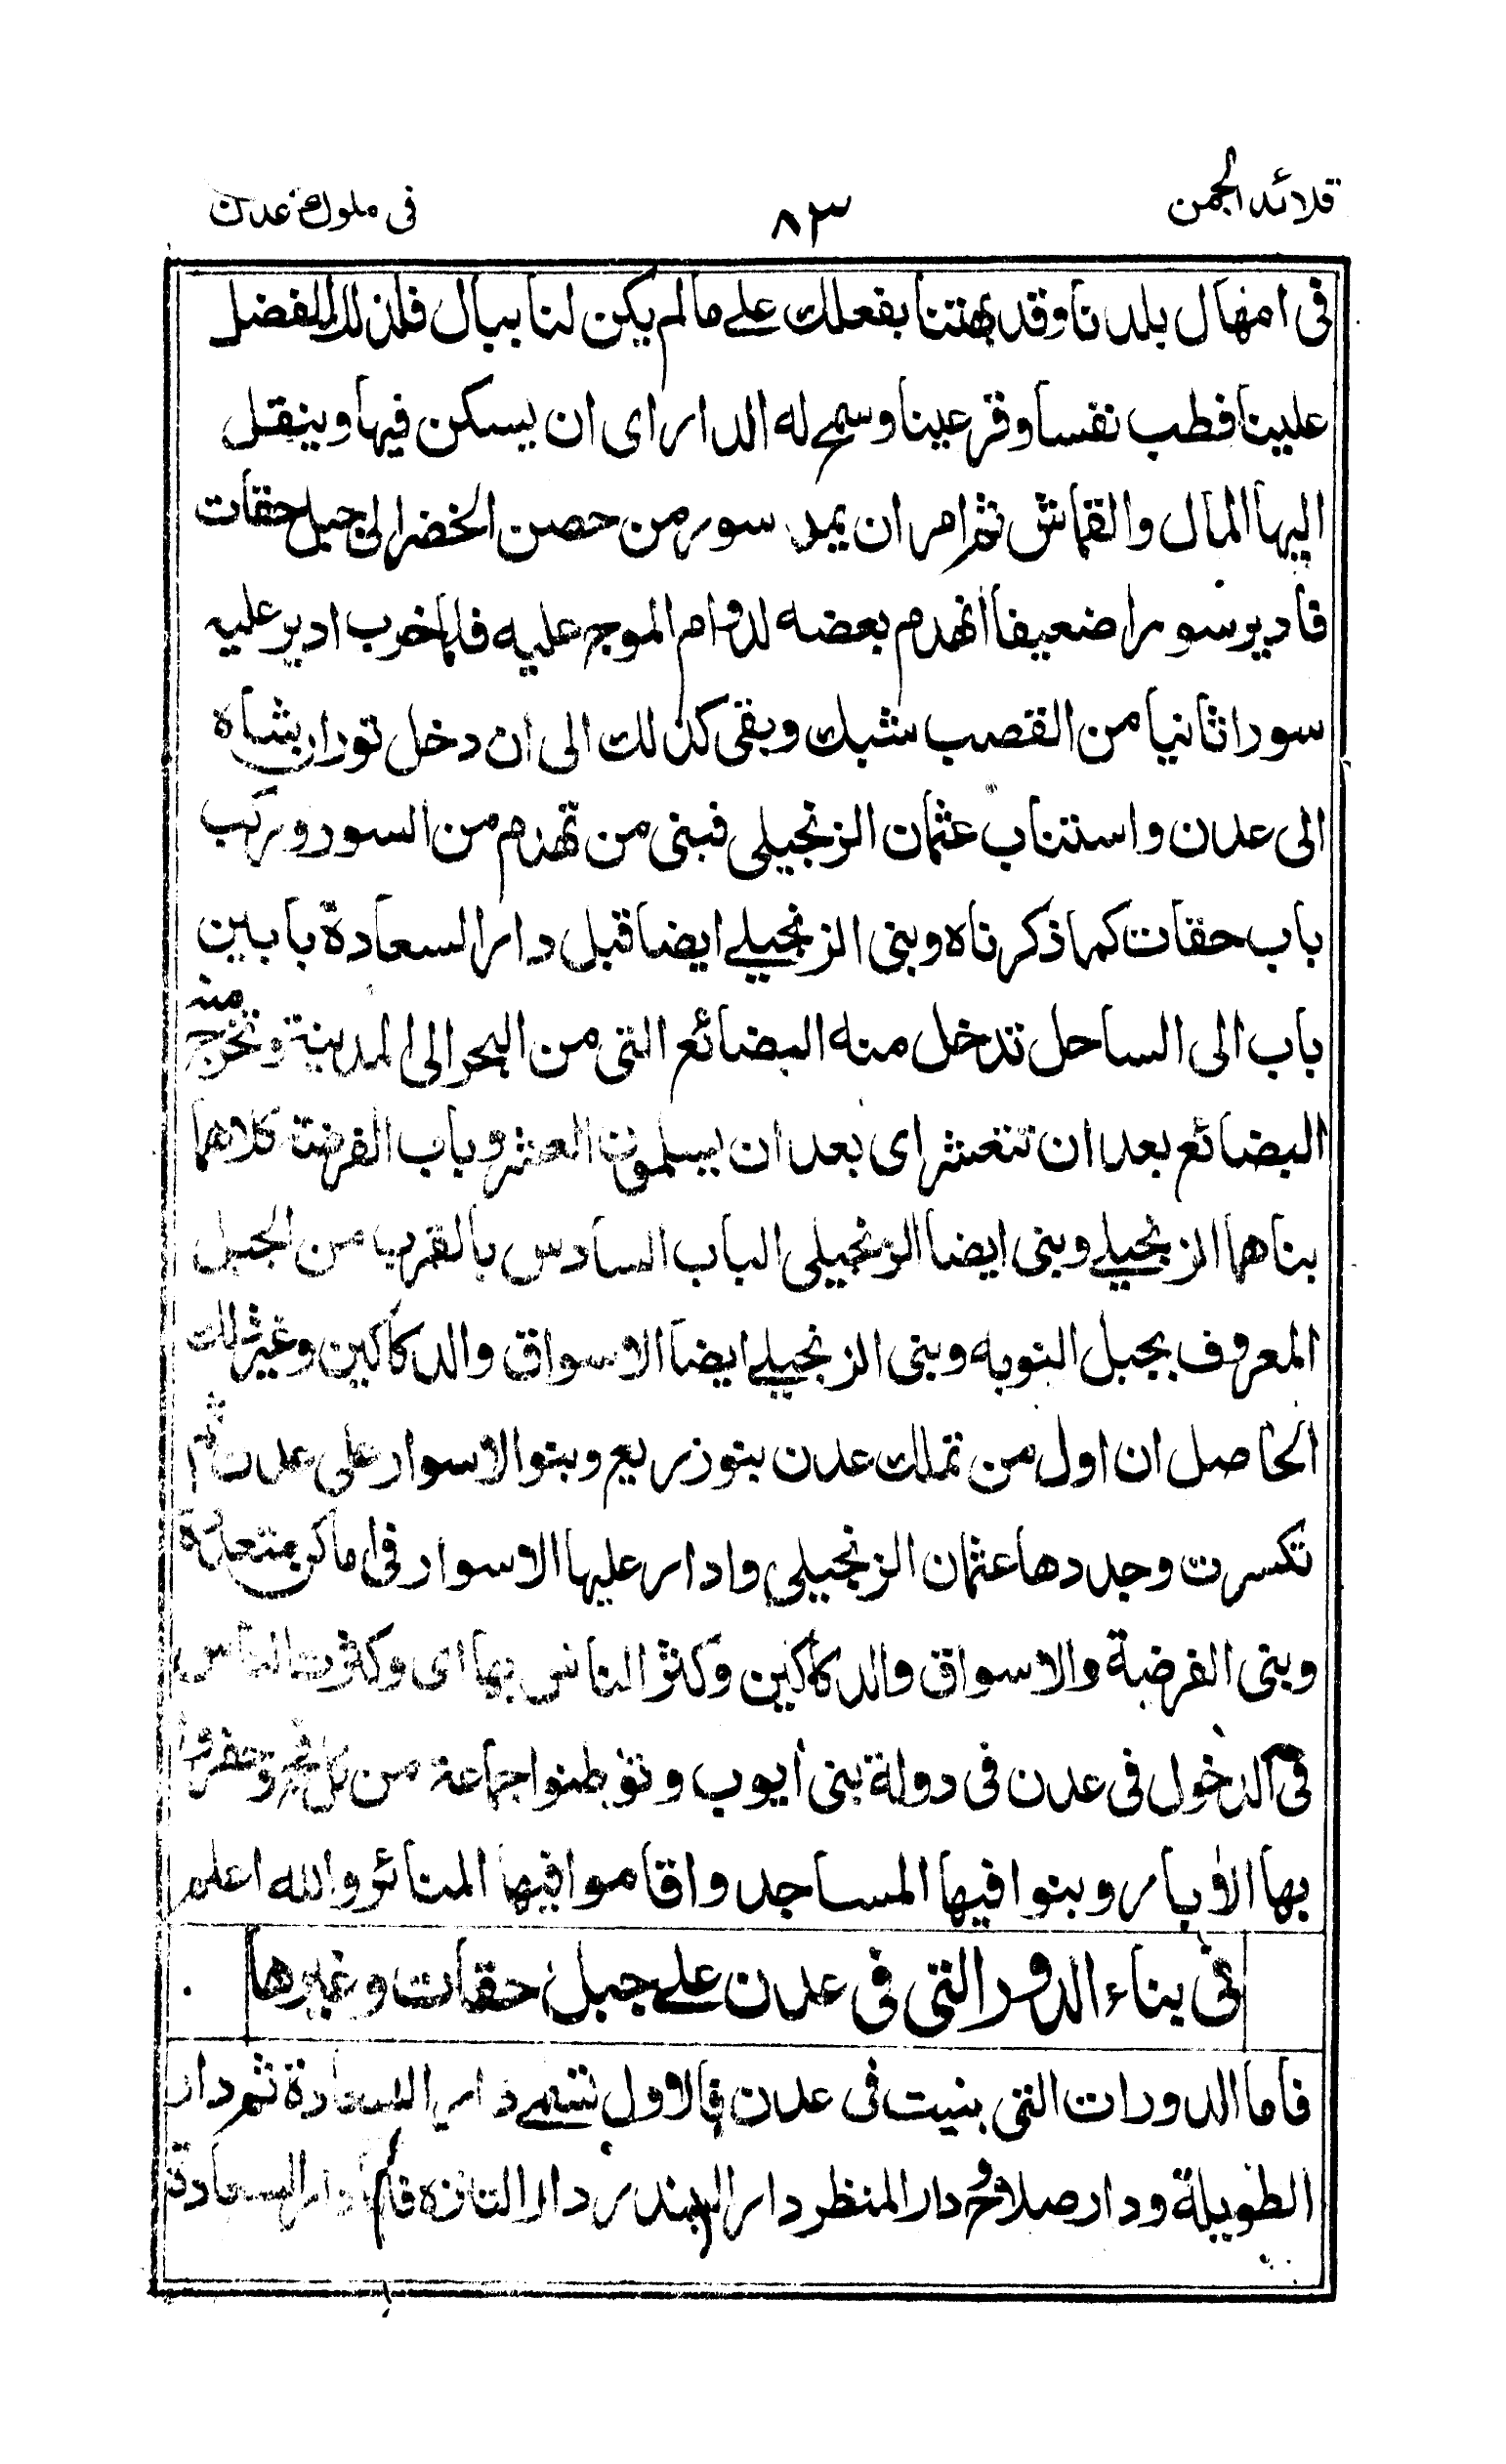 قلائد الجمن ٨٣ فى ملوك عدن
فى امهال بلدنا وقد بهتنا بفعلك على مالم يكن لنا ببال فلذلك الفضل
علينا فطب نفسا وقر عينا وسمح له الدار اى ان يسكن فيها وينقل
اليها المال والقماش ثم امر ان يمد سور من حصن الخضرا لى جبل حقات
فادير سورا ضعيفا انهدم بعضه لدوام الموج عليه فلما خرب ادير عليه
سورا ثانيا من القصب شبك وبقى كذلك الى ان دخل توران شاه
الى عدن واستناب عثمان الزنجيلى فبنى من تهدم من السور وركب
باب حقات كما ذكرناه وبنى الزنجيلى ايضا قبل دار السعادة بابين
باب الى الساحل تدخل منه البضائع التى من البحر الى المدينة وتخرج منه
البضائع بعد ان تتعشر اى بعد ان يسلمون العشر وباب الفرضة كلاهما
بناهما الزنجيلى وبنى ايضا الزنجيلى الباب السادس بالقرب من الجبل
المعروف بجبل النوبه وبنى الزنجيلى ايضا الاسواق والدكاكين وغير ذلك
الحاصل ان اول من تملك عدن بنو زريع وبنوا الاسوار على عدن ثم
تكسرت وجددها عثمان الزنجيلى وادار عليها الاسوار فى اماكن متعددة
وبنى الفرضة والاسواق والدكاكين وكثر الناس بها اى وكثرت الناس
فى الدخول فى عدن فى دولة بنى ايوب وتوطنوا جماعة من كل فج وحفروا
بها الابار وبنوا فيها المساجد واقاموا فيها المنائر والله اعلم
فى بناء الدور التى فى عدن على جبل حقات وغيرها
فاما الدورات التى بنيت فى عدن فالاول تسمى دار السعادة ثم دار
الطويلة ودار صلاح ودار المنظر دار البندر دار التانزه دار السعادة